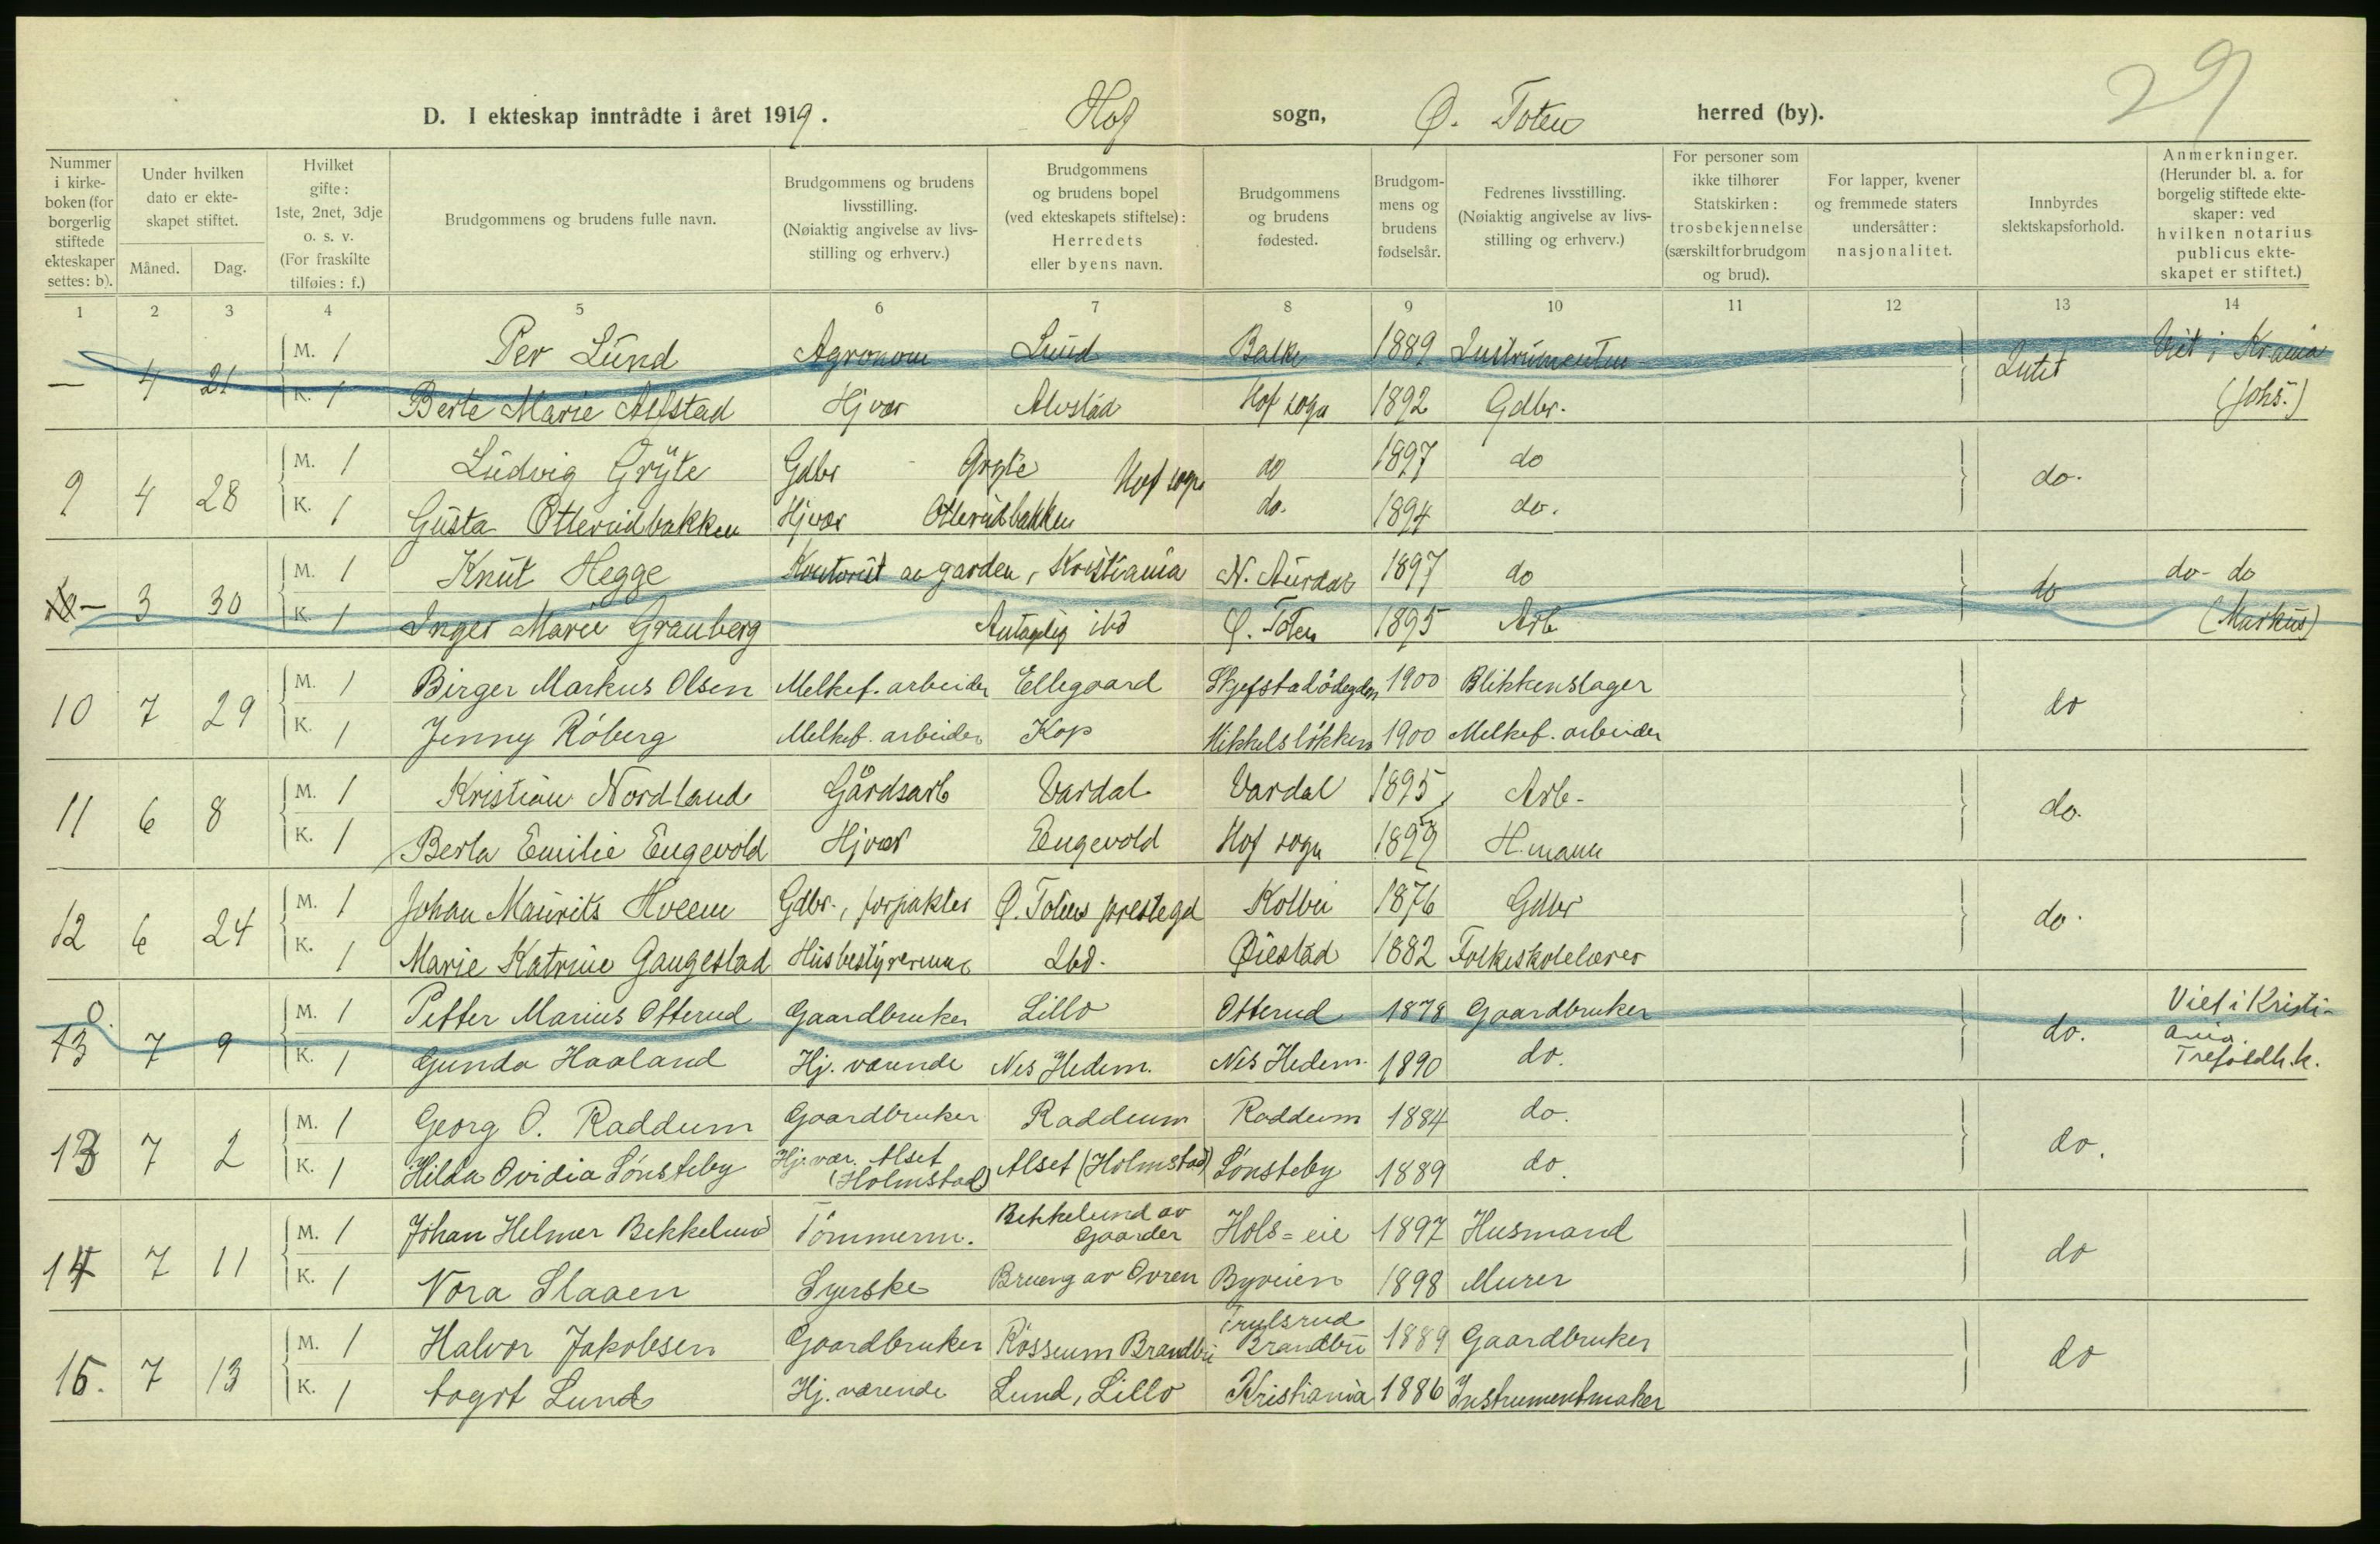 29
D. I ekteskap inntrådte i året 1919. Hof sogn, Ø. Toten herred (by).
Nummer i kirkeboken (for borgerlig stiftede ekteskaper settes: b).
Under hvilken dato er ekteskapet stiftet.
Måned. Dag.
Hvilket gifte: 1ste, 2net, 3dje o. s. v. (For fraskilte tilføies: f.)
Brudgommens og brudens fulle navn.
Brudgommens og brudens livsstilling. (Nøiaktig angivelse av livsstilling og erhverv.)
Brudgommens og brudens bopel (ved ekteskapets stiftelse): Herredets eller byens navn.
Brudgommens og brudens fødested.
Brudgommens og brudens fødselsår.
Fedrenes livsstilling. (Nøiaktig angivelse av livsstilling og erhverv.)
For personer som ikke tilhører Statskirken: trosbekjennelse (særskilt for brudgom og brud).
For lapper, kvener og fremmede staters undersåtter: nasjonalitet.
Innbyrdes slektskapsforhold.
Anmerkninger. (Herunder bl. a. for borgelig stiftede ekteskaper: ved hvilken notarius publicus ekteskapet er stiftet.)
1 2 3 4 5 6 7 8 9 10 11 12 13 14
— 4 21 M. 1 Per Lund Agronom Lund Balke 1889 Intet Viet i Krania
K. 1 Berte Marie Alfstad Hjvær Alvstad Hof sogn 1892 Gdbr. (Johs.)
9 4 28 M. 1 Ludvig Gryte Gdbr Gryte Hof sogn do 1897 do do.
K. 1 Gusta Otterudbakken Hjvær Otterudbakken do. 1894 do.
— 3 30 M. 1 Knut Hegge Kontorist av garden, Kristiania N. Aurdal 1897 do do do - do
K. 1 Inger Marie Granberg Antagelig ibd Ø. Toten 1895 Arb (Markus)
10 7 29 M. 1 Birger Markus Olsen Melkef. arbeider Ellegaard Skjefstadødegden 1900 Blikkenslager do
K. 1 Jenny Röberg Melkef. arbeider Kop Mikkelsløkken 1900 Melkef. arbeider
11 6 8 M. 1 Kristian Nordland Gårdsarb Vardal Vardal 1895 Arb. do.
K. 1 Berta Emilie Engevold Hjvær Engevold Hof sogn 1899 H.mann
12 6 24 M. 1 Johan Maurits Hveem Gdbr., forpakter Ø. Totens prestegd Kolbu 1876 Gdbr do.
K. 1 Marie Katrine Gaugestad Husbestyrerinne Ibd. Øiestad 1882 Folkeskolelærer
13 7 9 M. 1 Petter Marius Otterud Gaardbruker Lillo Otterud 1878 Gaardbruker do. Viet i Kristi-
ania
K. 1 Gunda Haaland Hj. værende Nes Hedem. Nes Hedem. 1890 do. Trefoldh.k.
13 7 2 M. 1 Georg O. Raddum Gaardbruker Raddum Raddum 1884 do. do.
K. 1 Hilda Ovidia Lönsteby Hj. vær. Alset (Holmstad) Alset (Holmstad) Lönsteby 1889 do.
14 7 11 M. 1 Johan Helmer Bekkelund Tömmerm. Bekkelund av Gaarder Hols=eie 1897 Husmand do
K. 1 Nora Slaaen Syerske Brueng av Ovren 1898 Murer
15. 7 13 M. 1 Halvor Jakobsen Gaardbruker Rössum Brandbu Trulsrud Brandbu 1889 Gaardbruker do
K. 1 Lund Hj. værende Lund, Lillo Kristiania 1886 Instrumentmaker